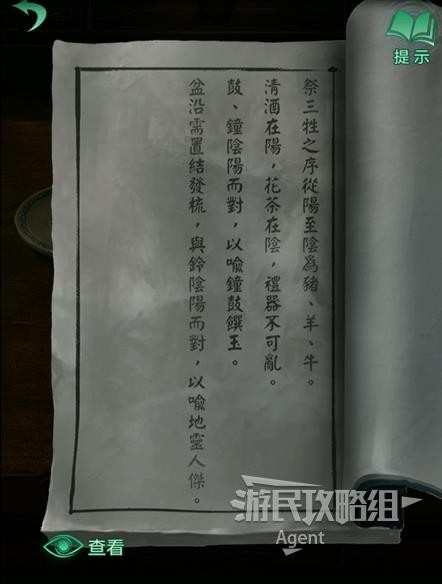 提示
祭三牲之序從陽至陰為豬、羊、牛。
清酒在陽，花茶在陰，禮器不可亂。
鼓、鐘陰陽而對，以喻鐘鼓饌玉。
盆沿需置結發梳，與鈴陰陽而對，以喻地靈人傑。
查看
游民攻略组
Agent